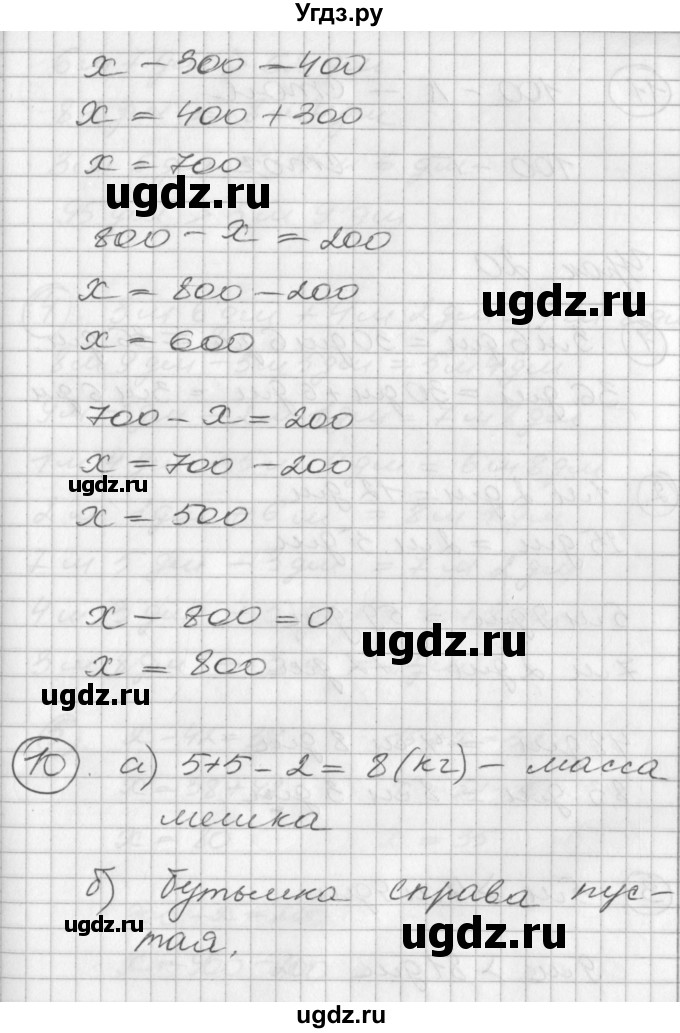 Угдз.ру
x - 300 - 400
x = 400 + 300
x = 700
ugdz.ru
800 - x = 200
x = 800 - 200
ugdz.ru
x - 600
700 - x = 200
x = 700 - 200
ugdz.ru
x = 500
x - 800 = 0
ugdz.ru
x = 800
ugdz.ru
10. а) 5+5 - 2 = 8 (кг) - масса
мешка
б) бутылка справа пус-
ugdz.ru
тая.
ugdz.ru
ugdz.ru